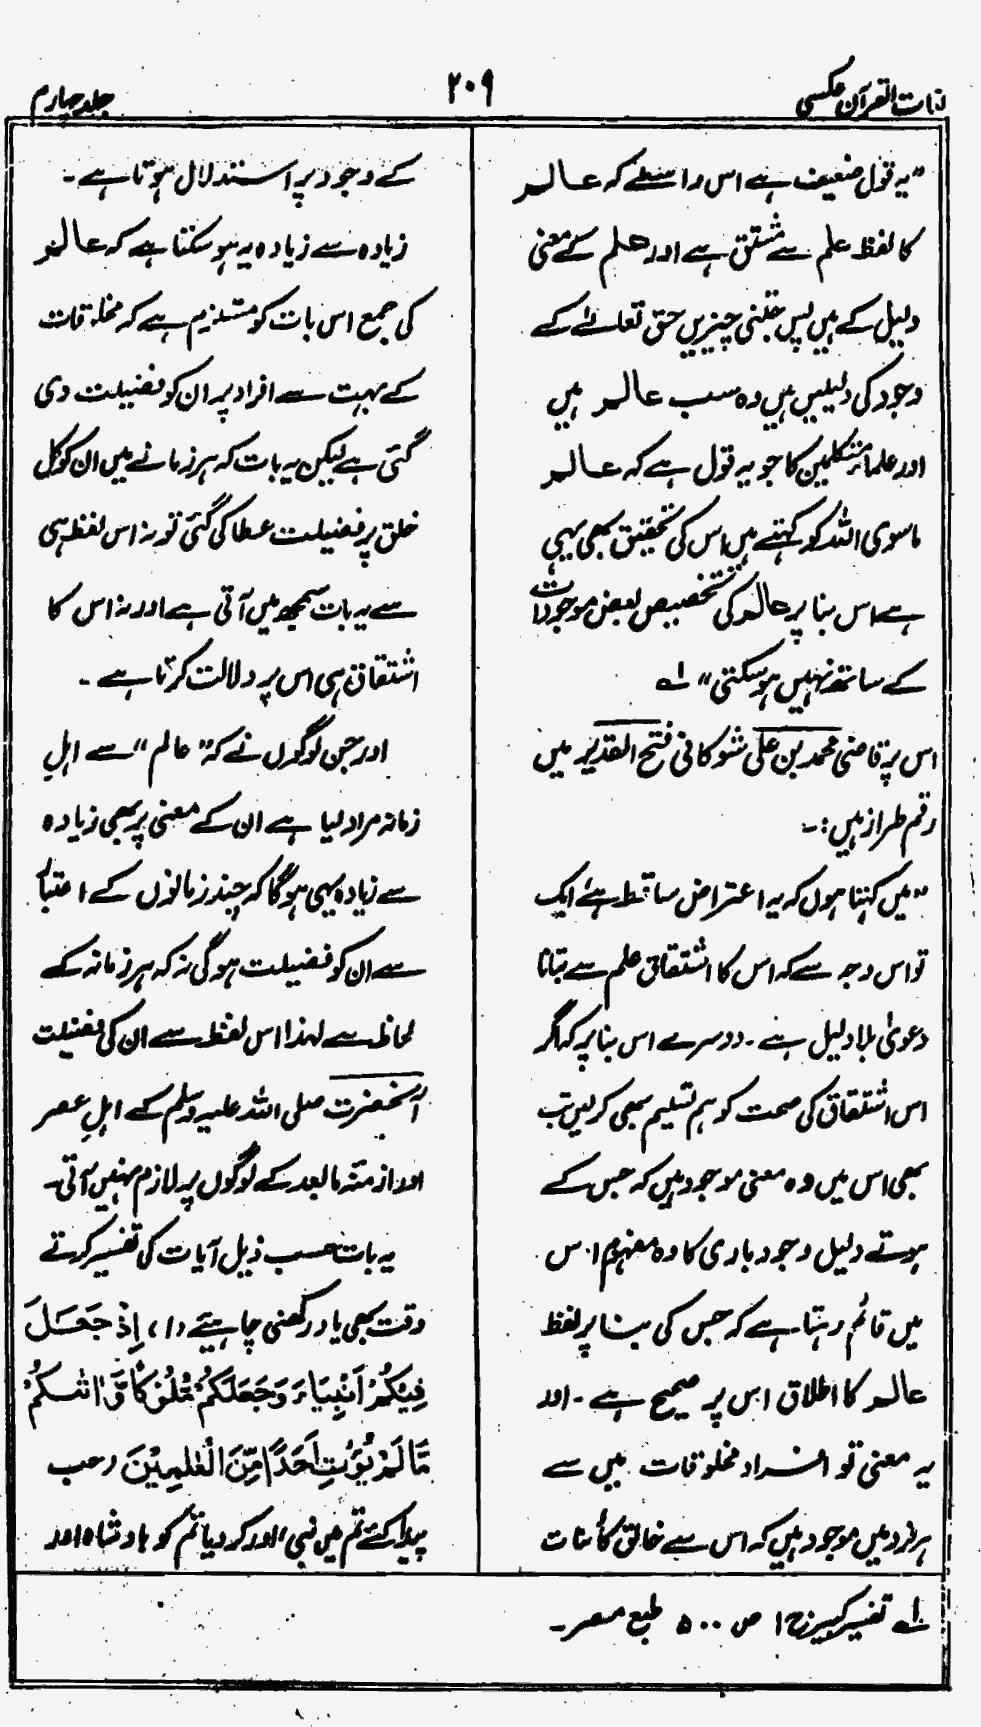 لغات القرآن عکسی
۲۰۹
جلد چہارم
"یہ قول ضعیف ہے اس واسطے کہ عالم
کا لفظ علم سے مشتق ہے اور علم کے معنی
دلیل کے ہیں پس جتنی چیزیں حق تعالےٰ کے
وجود کی دلیلیں ہیں وہ سب عالم ہیں
اور علماء متکلمین کا جو یہ قول ہے کہ عالم
ماسوی اللہ کو کہتے ہیں اس کی تحقیق بھی یہی
ہے اس بنا پر عالم کی تخصیص بعض موجودات
کے ساتھ نہیں ہو سکتی" لہ
اس پر قاضی محمد بن علی شوکانی فتح القدیر میں
رقم طراز ہیں :۔
"میں کہتا ہوں کہ یہ اعتراض ساقط ہے ایک
تو اس وجہ سے کہ اس کا اشتقاق علم سے بتانا
دعویٰ بلا دلیل ہے ۔ دوسرے اس بنا پر کہ اگر
اس اشتقاق کی صحت کو ہم تسلیم بھی کر لیں تب
بھی اس میں وہ معنی موجود ہیں کہ جس کے
ہوتے دلیل وجود باری کا وہ مفہوم اس
میں قائم رہتا ہے کہ جس کی بنا پر لفظ
عالم کا اطلاق اس پر صحیح ہے ۔ اور
یہ معنی تو افراد مخلوقات میں سے
ہر فرد میں موجود ہیں کہ اس سے خالق کائنات
کے وجود پر استدلال ہوتا ہے ۔
زیادہ سے زیادہ یہ ہو سکتا ہے کہ عالم
کی جمع اس بات کو مستلزم ہے کہ مخلوقات
کے بہت سے افراد پر ان کو فضیلت دی
گئی ہے لیکن یہ بات کہ ہر زمانے میں ان کو کل
خلق پر فضیلت عطا کی گئی تو نہ اس لفظ ہی
سے یہ بات سمجھ میں آتی ہے اور نہ اس کا
اشتقاق ہی اس پر دلالت کرتا ہے ۔
اور جن لوگوں نے کہ "عالم" سے اہلِ
زمانہ مراد لیا ہے ان کے معنی پر بھی زیادہ
سے زیادہ یہی ہو گا کہ چند زمانوں کے اعتبار
سے ان کو فضیلت ہو گی نہ کہ ہر زمانہ کے
لحاظ سے لہذا اس لفظ سے ان کی فضیلت
آنحضرت صلی اللہ علیہ وسلم کے اہلِ عصر
اور ازمنہ مابعد کے لوگوں پر لازم نہیں آتی۔
یہ بات حسب ذیل آیات کی تفسیر کرتے
وقت بھی یاد رکھنی چاہیئے (۱) اِذْ جَعَلَ
فِیْکُمْ اَنْبِیَاءَ وَجَعَلَکُمْ مُّلُوْکًا وَّاٰتٰىکُمْ
مَّا لَمْ یُؤْتِ اَحَدًا مِّنَ الْعٰلَمِیْنَ (جب
پیدا کئے تم میں نبی، اور کر دیا تم کو بادشاہ اور
لہ تفسیر کبیر ج ۱ ص ۵۰۰ طبع مصر ۔